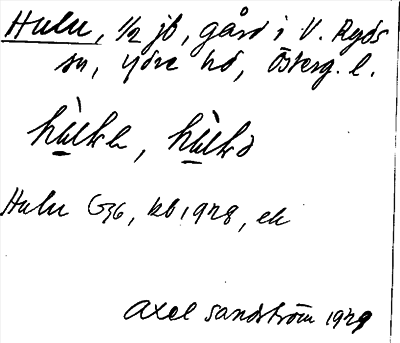 Hulu, 1/2 jb, gård i V. Ryds
sn, Ydre hd, Österg. l.
Hulu G36, kb 1928, ek
Axel Sandström 1929